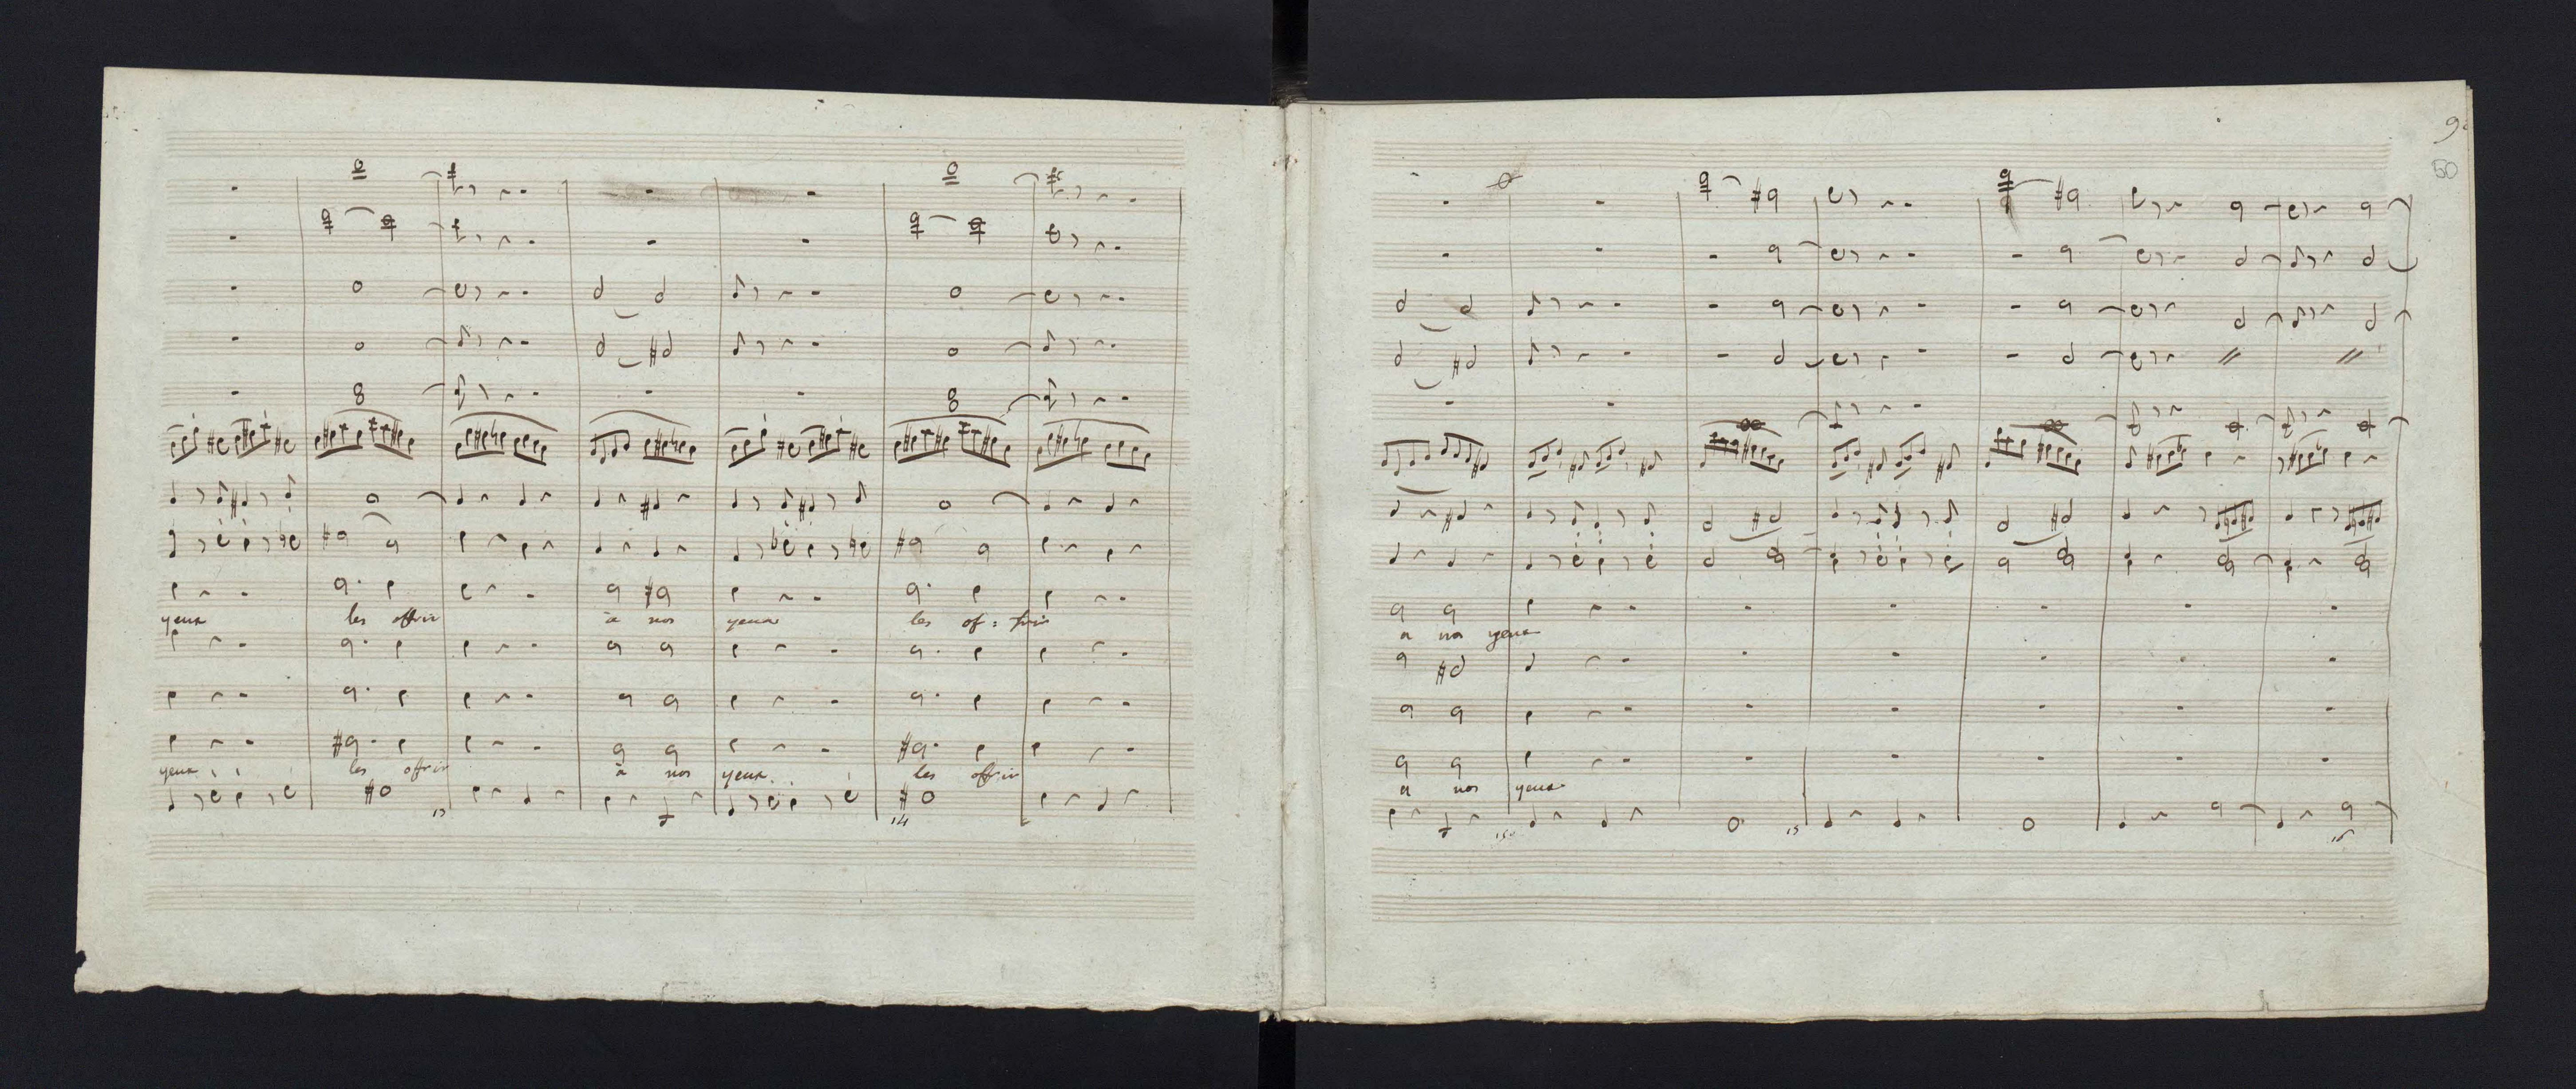 yeux les offrir à nos yeux les of : frir
yeux les offrir à nos yeux les offrir
13 14
50
a nos yeux
a nos yeux
15